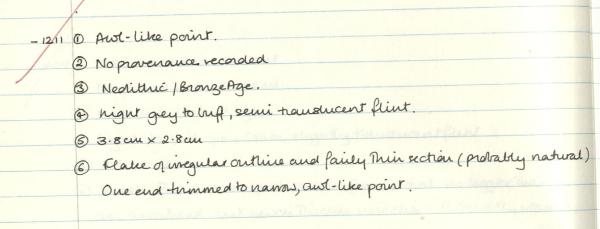 - 1211 ① Awl-like point.
② No provenance recorded
③ Neolithic / Bronze Age.
④ Light grey to buff, semi translucent flint.
⑤ 3.8cm x 2.8cm
⑥ Flake of irregular outline and fairly thin section (probably natural)
One end trimmed to narrow, awl-like point.